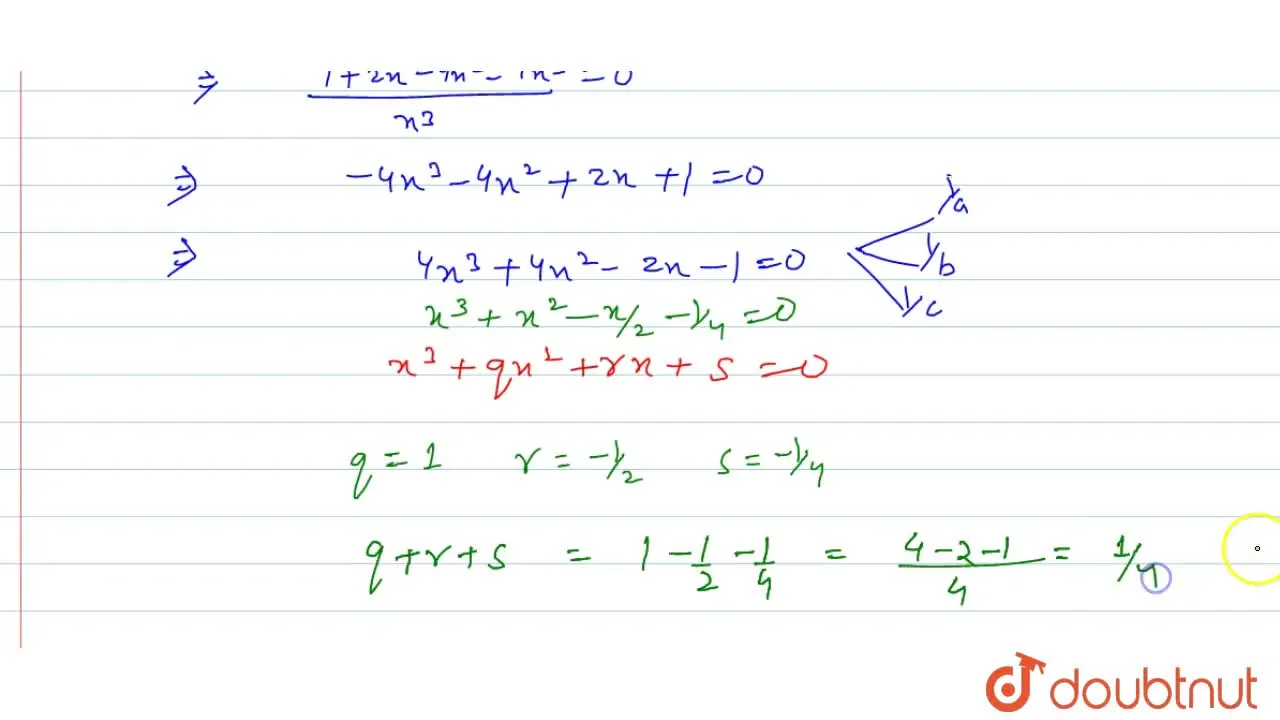 ⇒ 1 + 2x - 4x² - 4x³ = 0
x³
⇒ -4x³ - 4x² + 2x + 1 = 0
1/a
⇒ 4x³ + 4x² - 2x - 1 = 0
1/b
1/c
x³ + x² - x/2 - 1/4 = 0
x³ + qx² + rx + s = 0
q = 1 r = -1/2 s = -1/4
q + r + s = 1 - 1/2 - 1/4 = (4 - 2 - 1)/4 = 1/4
doubtnut